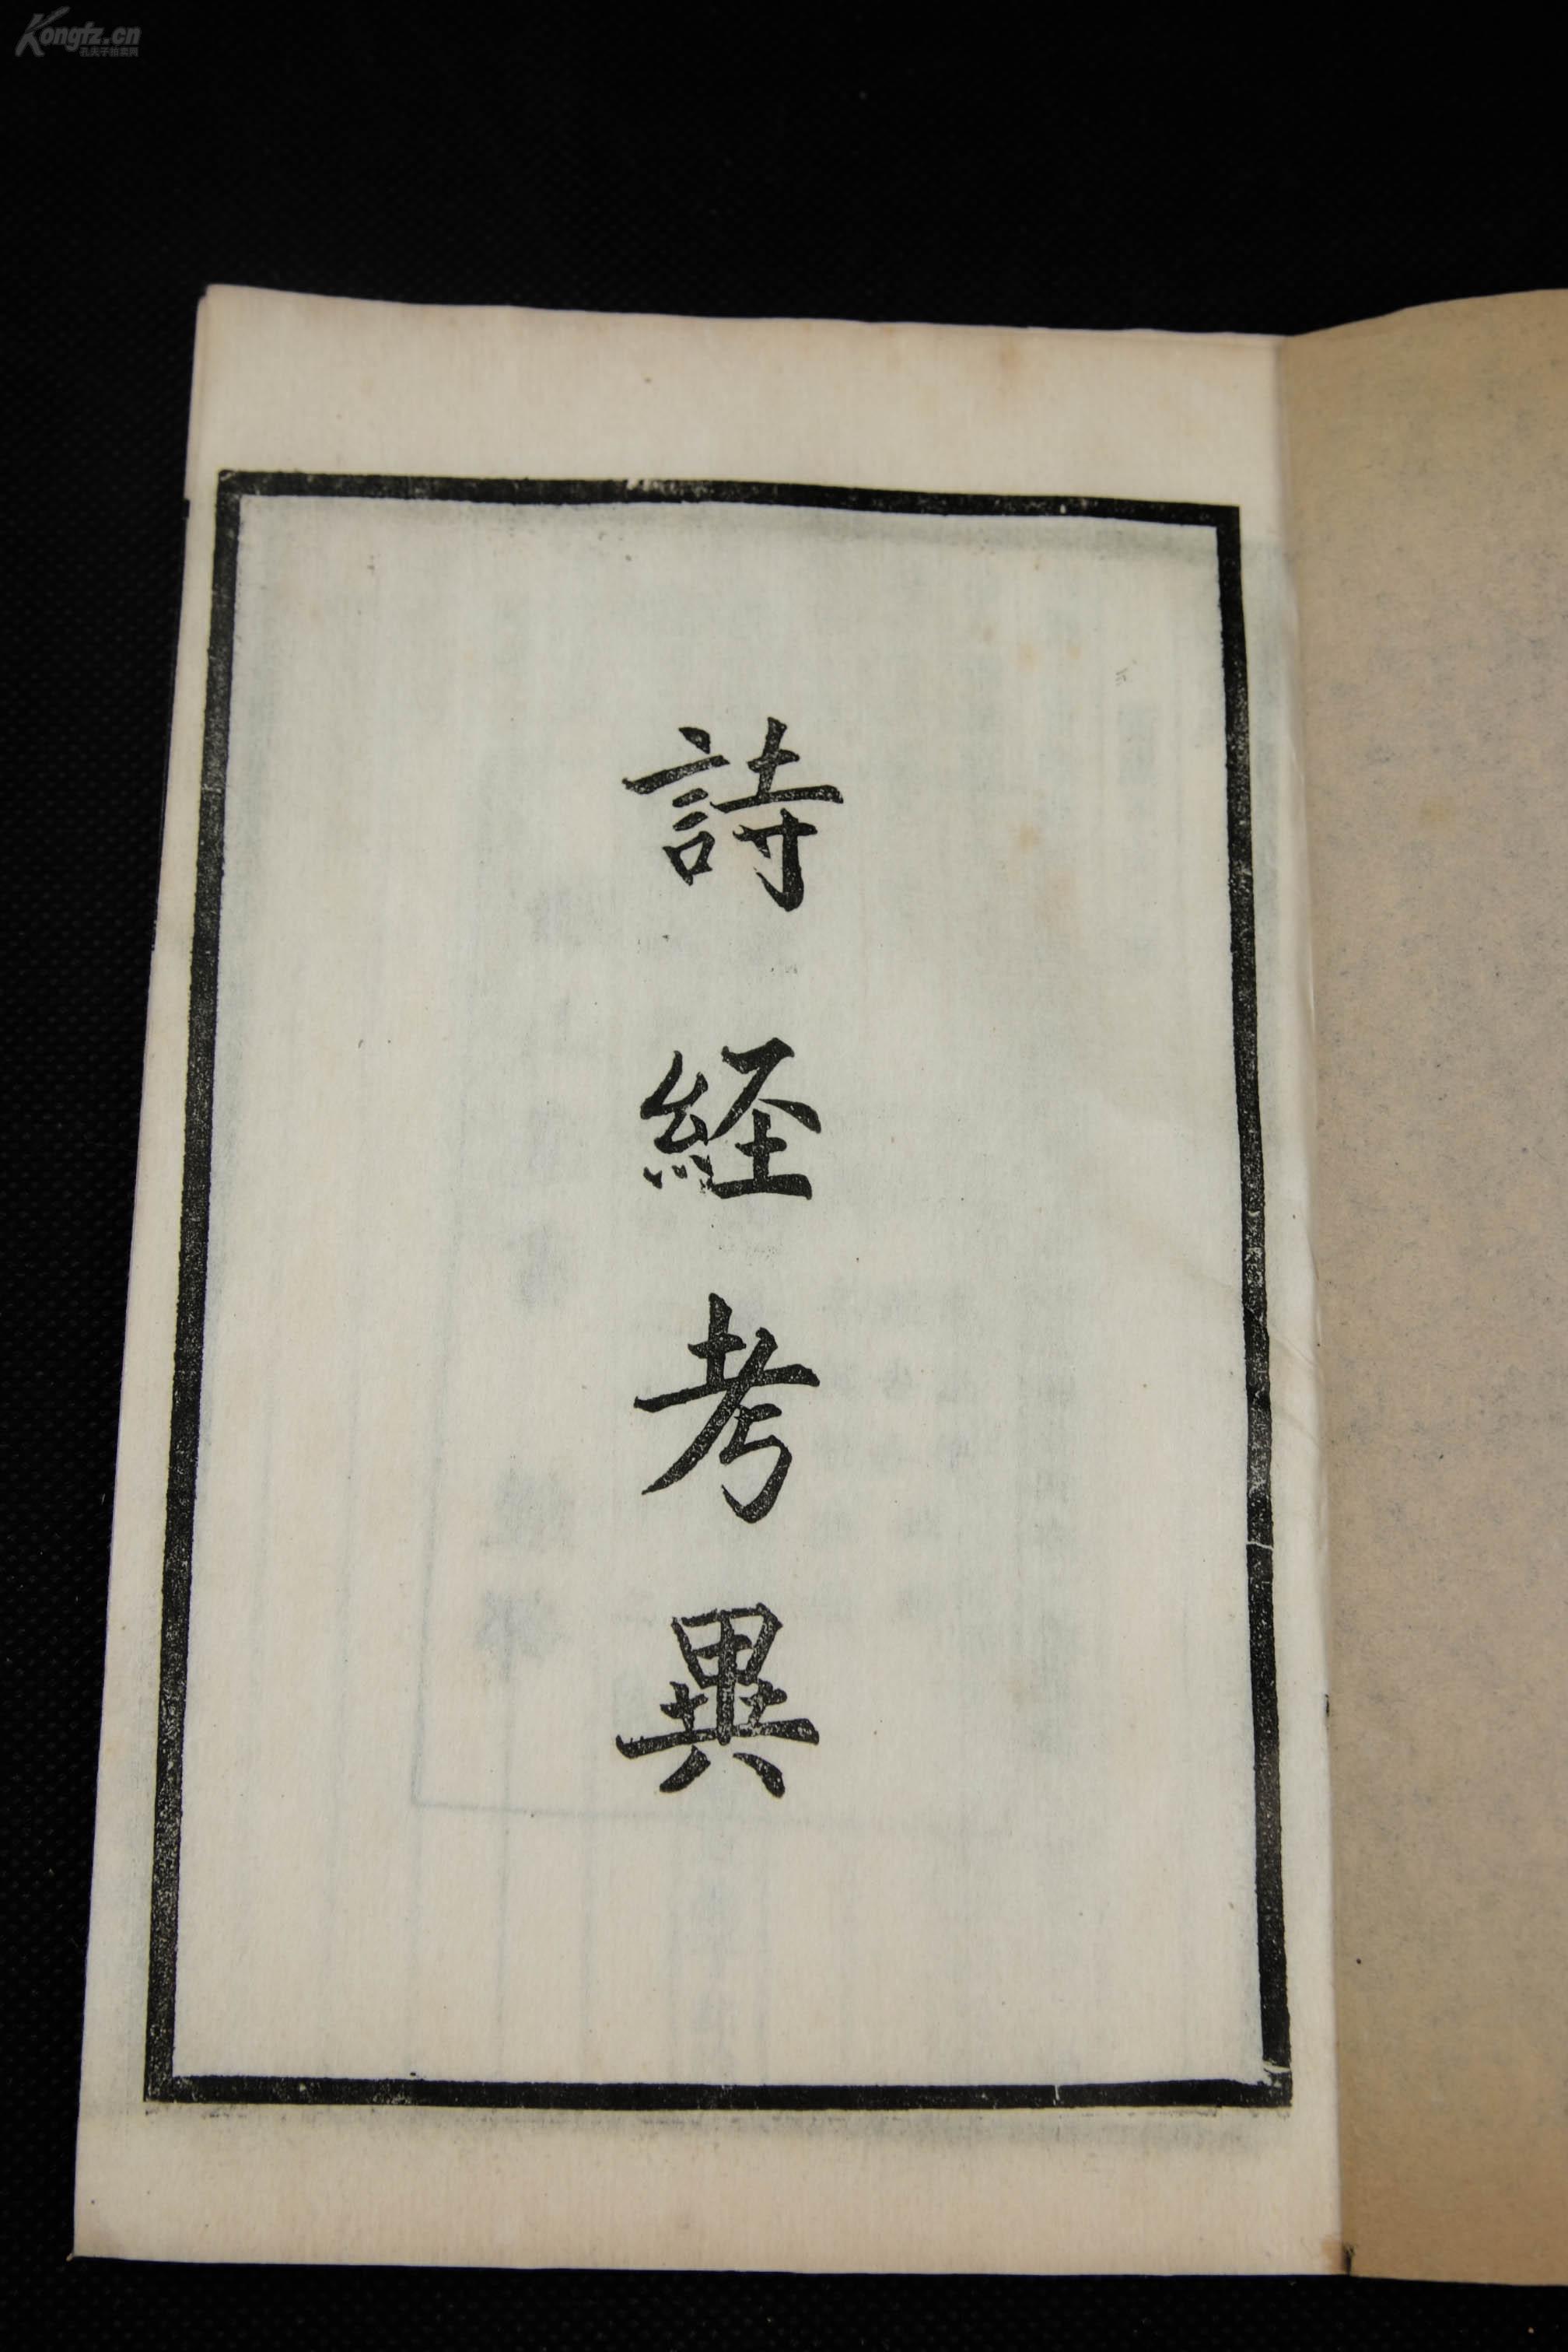 Kongfz.cn
孔夫子拍卖网
詩經考異